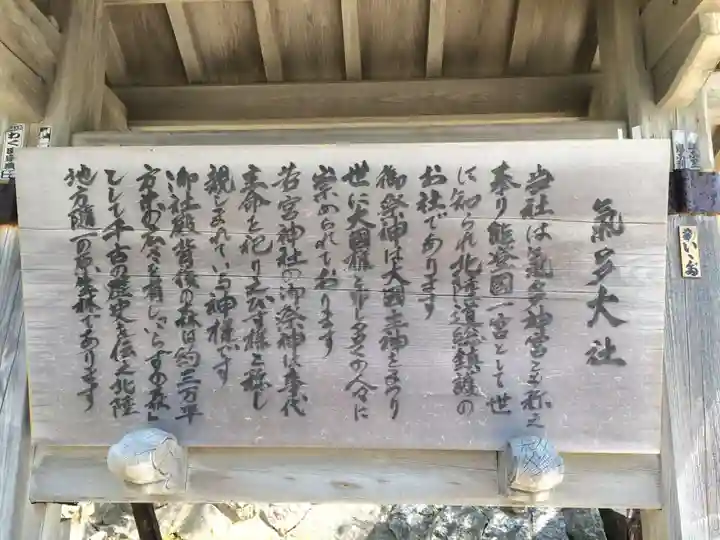 氣多大社
当社は氣多神宮とも称え
奉り能登國一宮として世
に知られ北陸道総鎮護の
お社であります
御祭神は大國主神をまつり
世に大國様と申し多くの人々に
崇められております
若宮神社の御祭神は事代
主命を祀りゑびす様と称し
親しまれている神様です
御社殿背後の森は約三万平
方米の広さを有し「いらずの森」
として千古の歴史を伝え北陸
地方随一の原生林であります